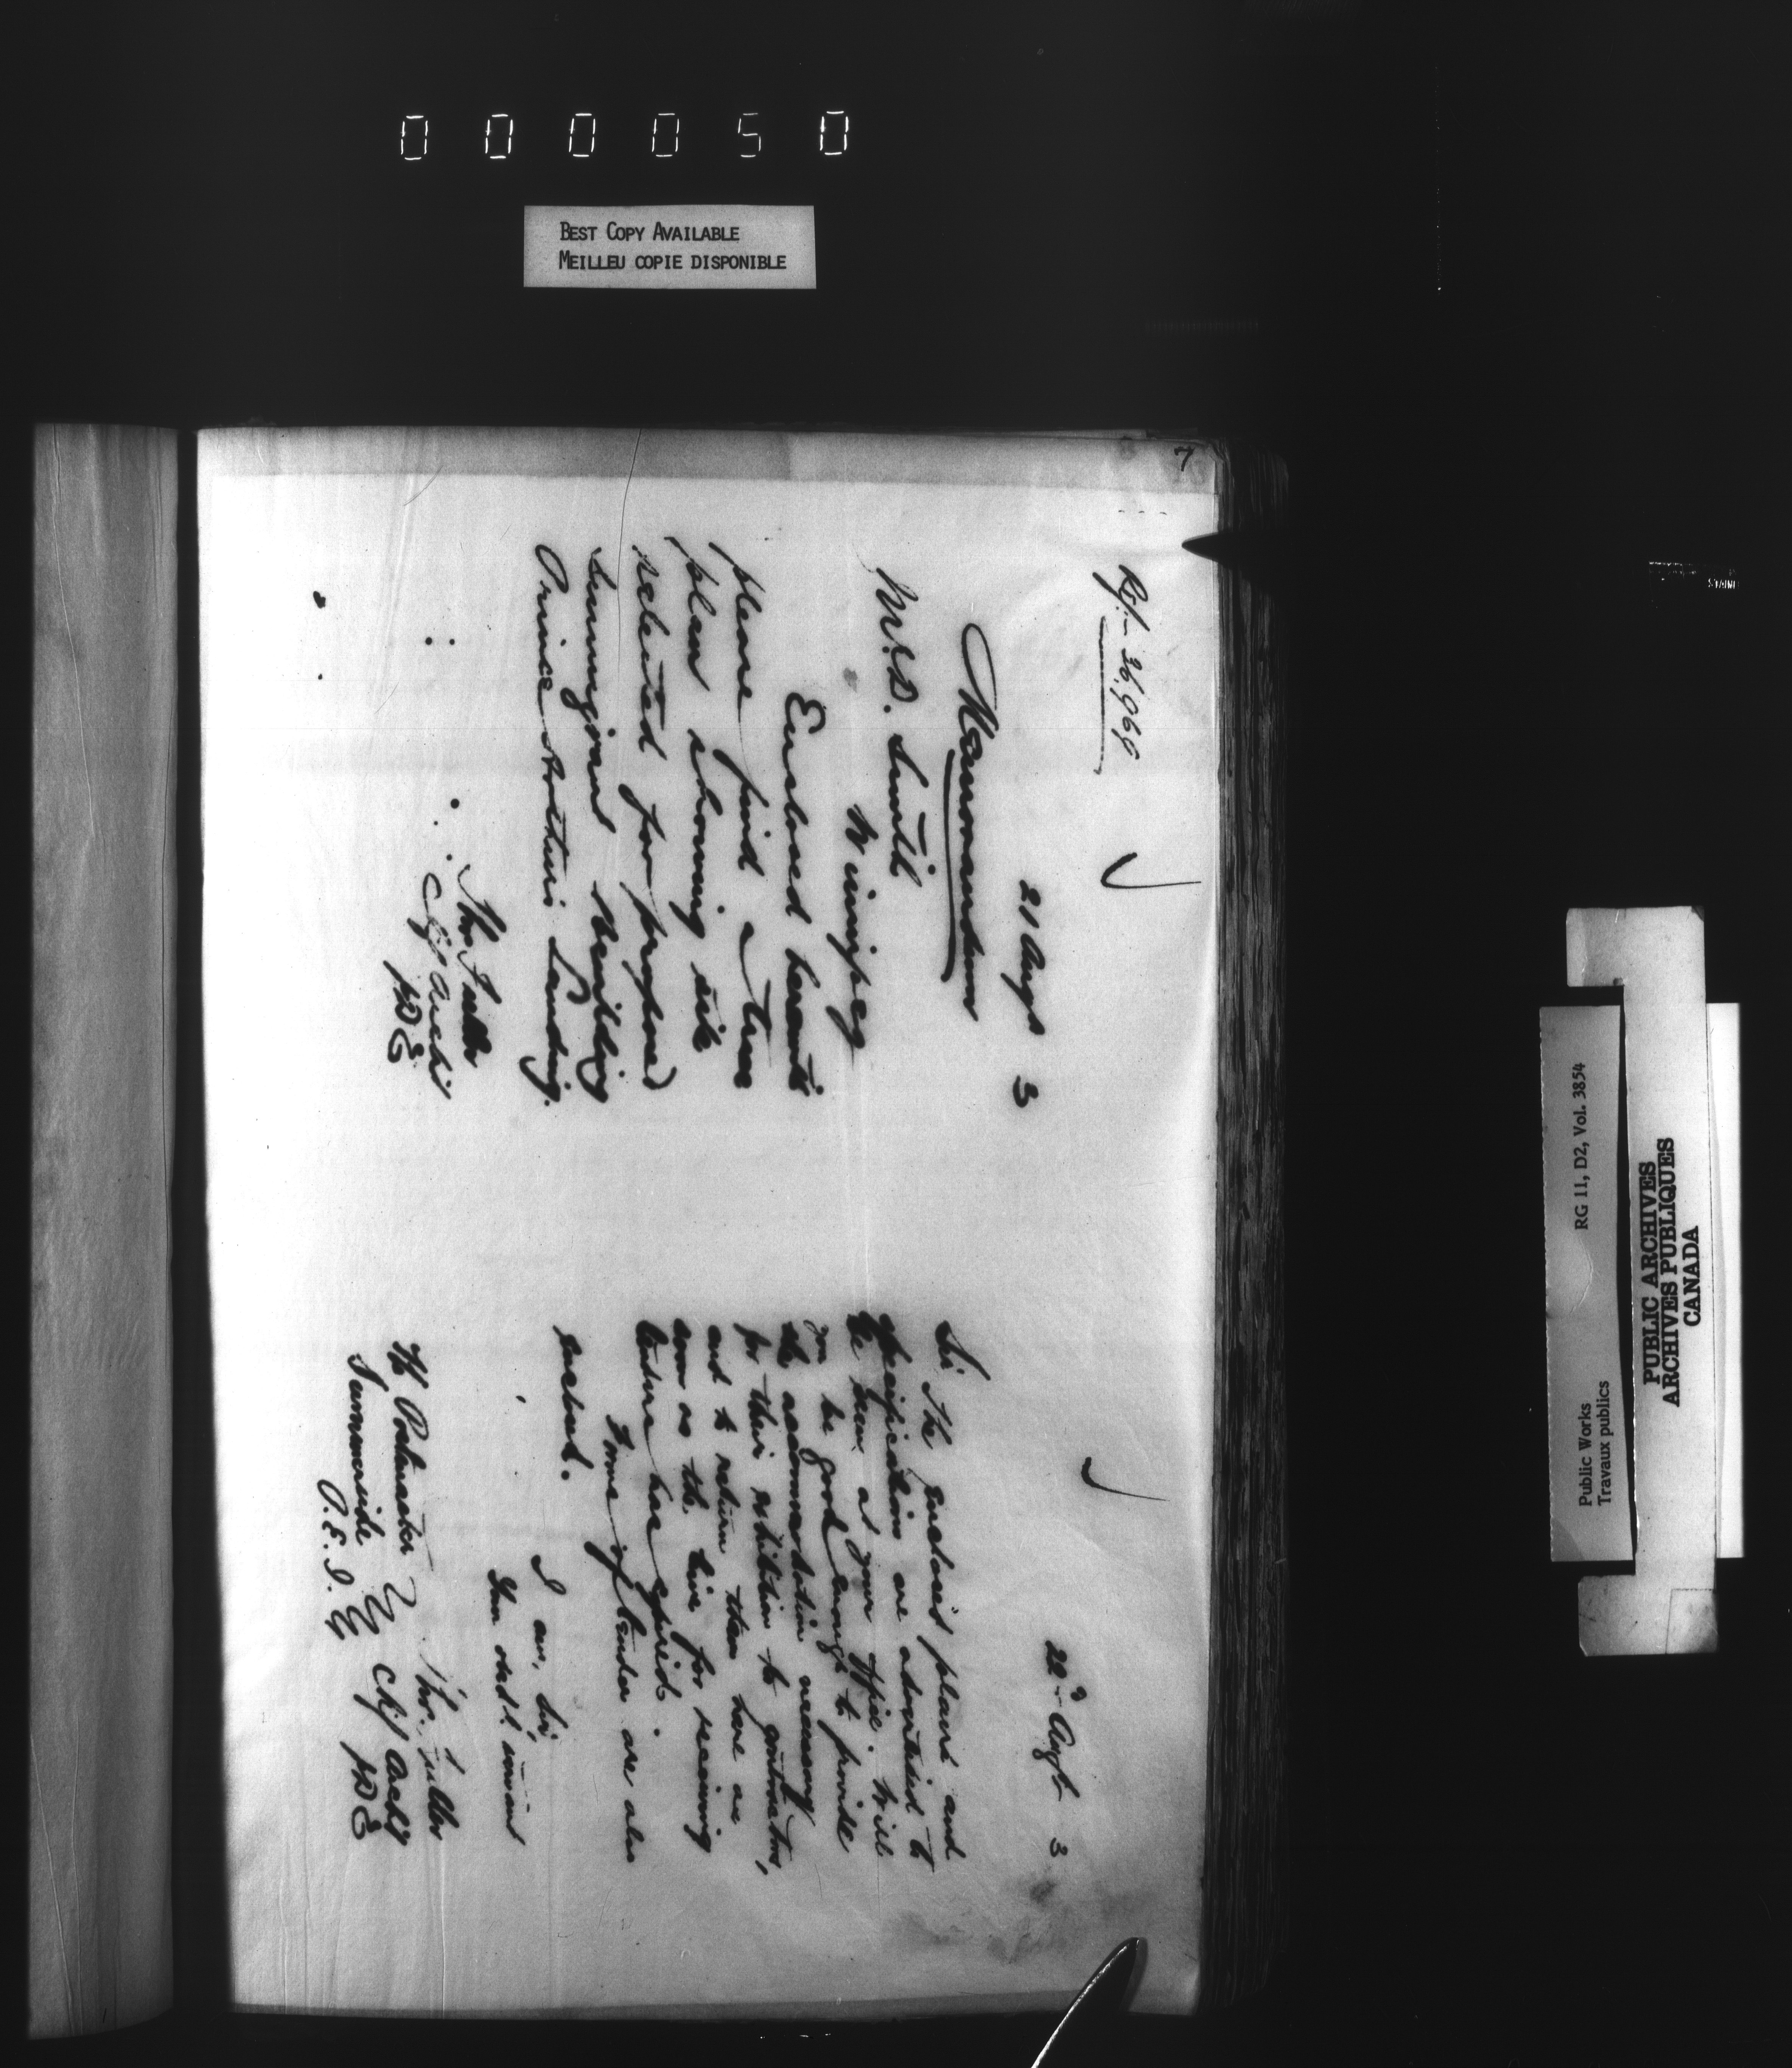 000050
BEST COPY AVAILABLE
MEILLEU COPIE DISPONIBLE
7
Ref. 36,969
21 Augt 3
Memorandum
W. D. Smith
Winnipeg
Enclosed herewith
please find a trace
plan showing site
selected for proposed
Immigrant Building
Prince Arthurs Landing.
Tho. Fuller
Chf Archt
P.D.
22nd Augt 3
Sir, The enclosed plans and
specifications are advertised to
be seen at your office. Will
you be good enough to provide
the accommodation necessary
for their exhibition to contractors,
and to return them here as
soon as the time for receiving
tenders has expired.
Forms of tender are also
enclosed.
I am, Sir,
Your obdt. servant
Tho. Fuller
Chf Archt
P.D.
The Postmaster
Summerside
P. E. I.
RG 11, D2, Vol. 3854
Public Works
Travaux publics
PUBLIC ARCHIVES
ARCHIVES PUBLIQUES
CANADA